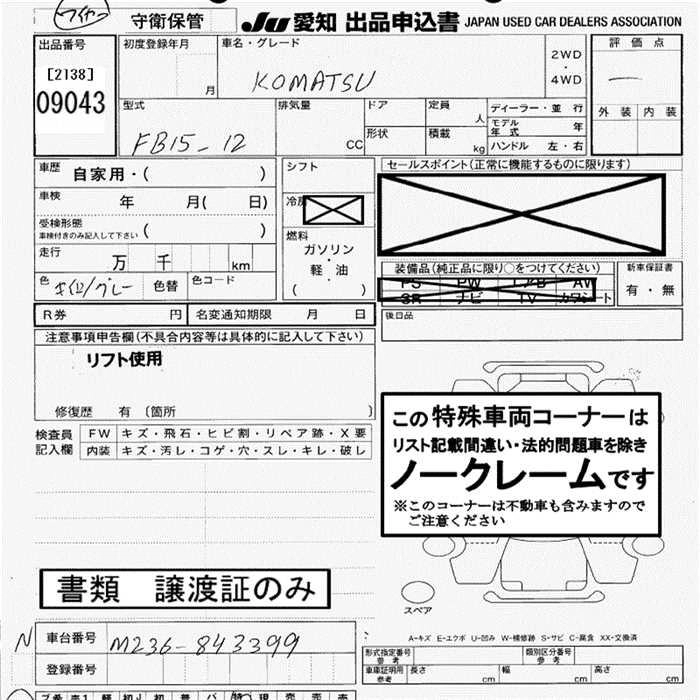 守衛保管
JU 愛知 出品申込書 JAPAN USED CAR DEALERS ASSOCIATION
出品番号
[2138]
09043
初度登録年月
月
車名・グレード
KOMATSU
2WD
・
4WD
評価点
外装 内装
型式
FB15-12
排気量
CC
ドア
形状
定員
人
積載
kg
ディーラー・並 行
モデル年式 年
ハンドル 左・右
車歴 自家用・( )
車検 年 月( 日)
受検形態
車検付きのみ記入して下さい ( )
走行 万 千 km
色 キイロ/グレー 色替 色コード
シフト
冷房
燃料
ガソリン
・
軽・油
( )
セールスポイント(正常に機能するものに限ります)
装備品(純正品に限り○をつけてください)
PS PW エアB AV
SR ナビ TV カワシート
新車保証書
有・無
R券 円 名変通知期限 月 日
後日品
注意事項申告欄(不具合内容等は具体的に記入して下さい)
リフト使用
修復歴 有 〔箇所 〕
検査員記入欄
FW キズ・飛石・ヒビ割・リペア跡・X要
内装 キズ・汚レ・コゲ・穴・スレ・キレ・破レ
この特殊車両コーナーは
リスト記載間違い・法的問題車を除き
ノークレームです
※このコーナーは不動車も含みますので
ご注意ください
書類 譲渡証のみ
スペア
A-キズ E-エクボ U-凹み W-補修跡 S-サビ C-腐食 XX-交換済
N 車台番号 M236-843399
登録番号
形式指定番号
参考
類別区分番号
参考
車車証明用
参考
長さ cm 幅 cm 高さ cm